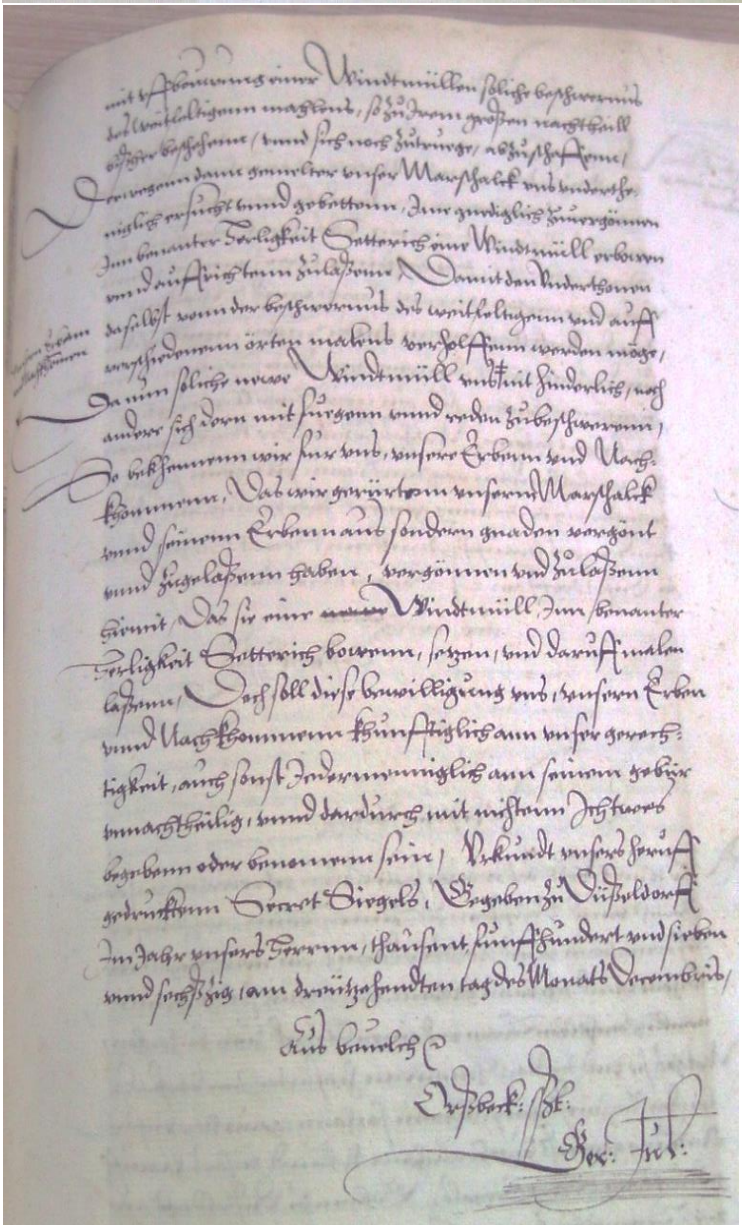 mit uffbouwung einer Windtmüllen soliche beschwernus
des weitfeltigenn mahlens, so zu Irem großen nachtheill
bißher beschehenn, unnd sich noch zutruege, abzuschaffenn,
Derwegenn dann gemelter unser Marschalck uns underthe
niglich ersucht unnd gebettenn, Ime gnediglich zuvergönnen
Inn benanter Herligkeit Setterich eine Windtmüll erbowen
unnd auffrichtenn zulaßenn, Damit den Underthonen
daselbst vonn der beschwernus des weitfeltigenn und auff
verschiedenenn örten malens verholffenn werden möge,
Da nun soliche newe Windtmüll uns nit hinderlich, noch
andere sich dern mit fuegenn unnd reden zubeschwerenn,
So bekhennenn wir fur uns, unsere Erbenn und Nach-
khommenn, Das wir gerürtem unserm Marschalck
unnd seinenn Erbenn aus sondern gnaden vergönt
unnd zugelaßenn haben, vergönnen und zulaßenn
hiemit, Das sie eine Windtmüll, Inn benanter
Herligkeit Setterich bowenn, setzen, und daruff malen
laßenn, Doch soll diese bewilligung uns, unsern Erben
unnd Nachkhommenn khunfftiglich ann unser gerech-
tigkeit, auch sonst Jedermenniglich ann seinem gebür
unnachtheilig, unnd dardurch mit nichtenn Ichtwes
begebenn oder benomenn sein, Urkundt unsers heruff
gedrucktenn Secret Siegels, Gegeben zu Düßeldorff
Im Jahr unsers Herrnn, thausent funffhundert und sieben
unnd sechßzig, am dreützehendten tag des Monats Decembris,
Aus bevelch
Orßbeck:
Ger: Jul: